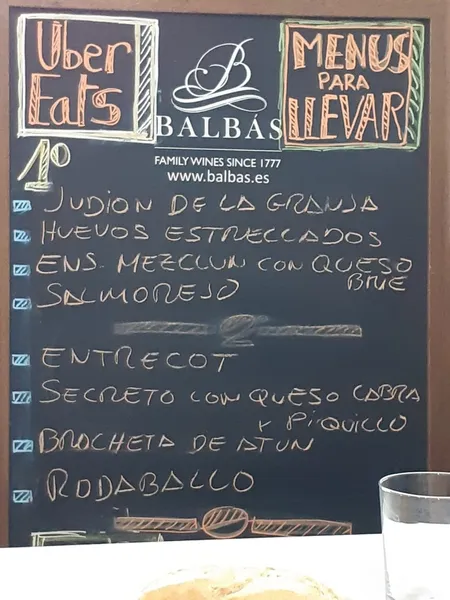 Uber
Eats
B
BALBÁS
FAMILY WINES SINCE 1777
www.balbas.es
MENUS
PARA
LLEVAR
1º
JUDION DE LA GRANJA
HUEVOS ESTRELLADOS
ENS. MEZCLUN CON QUESO
BRIE
SALMOREJO
2
ENTRECOT
SECRETO CON QUESO CABRA
Y PIQUILLO
BROCHETA DE ATUN
RODABALLO